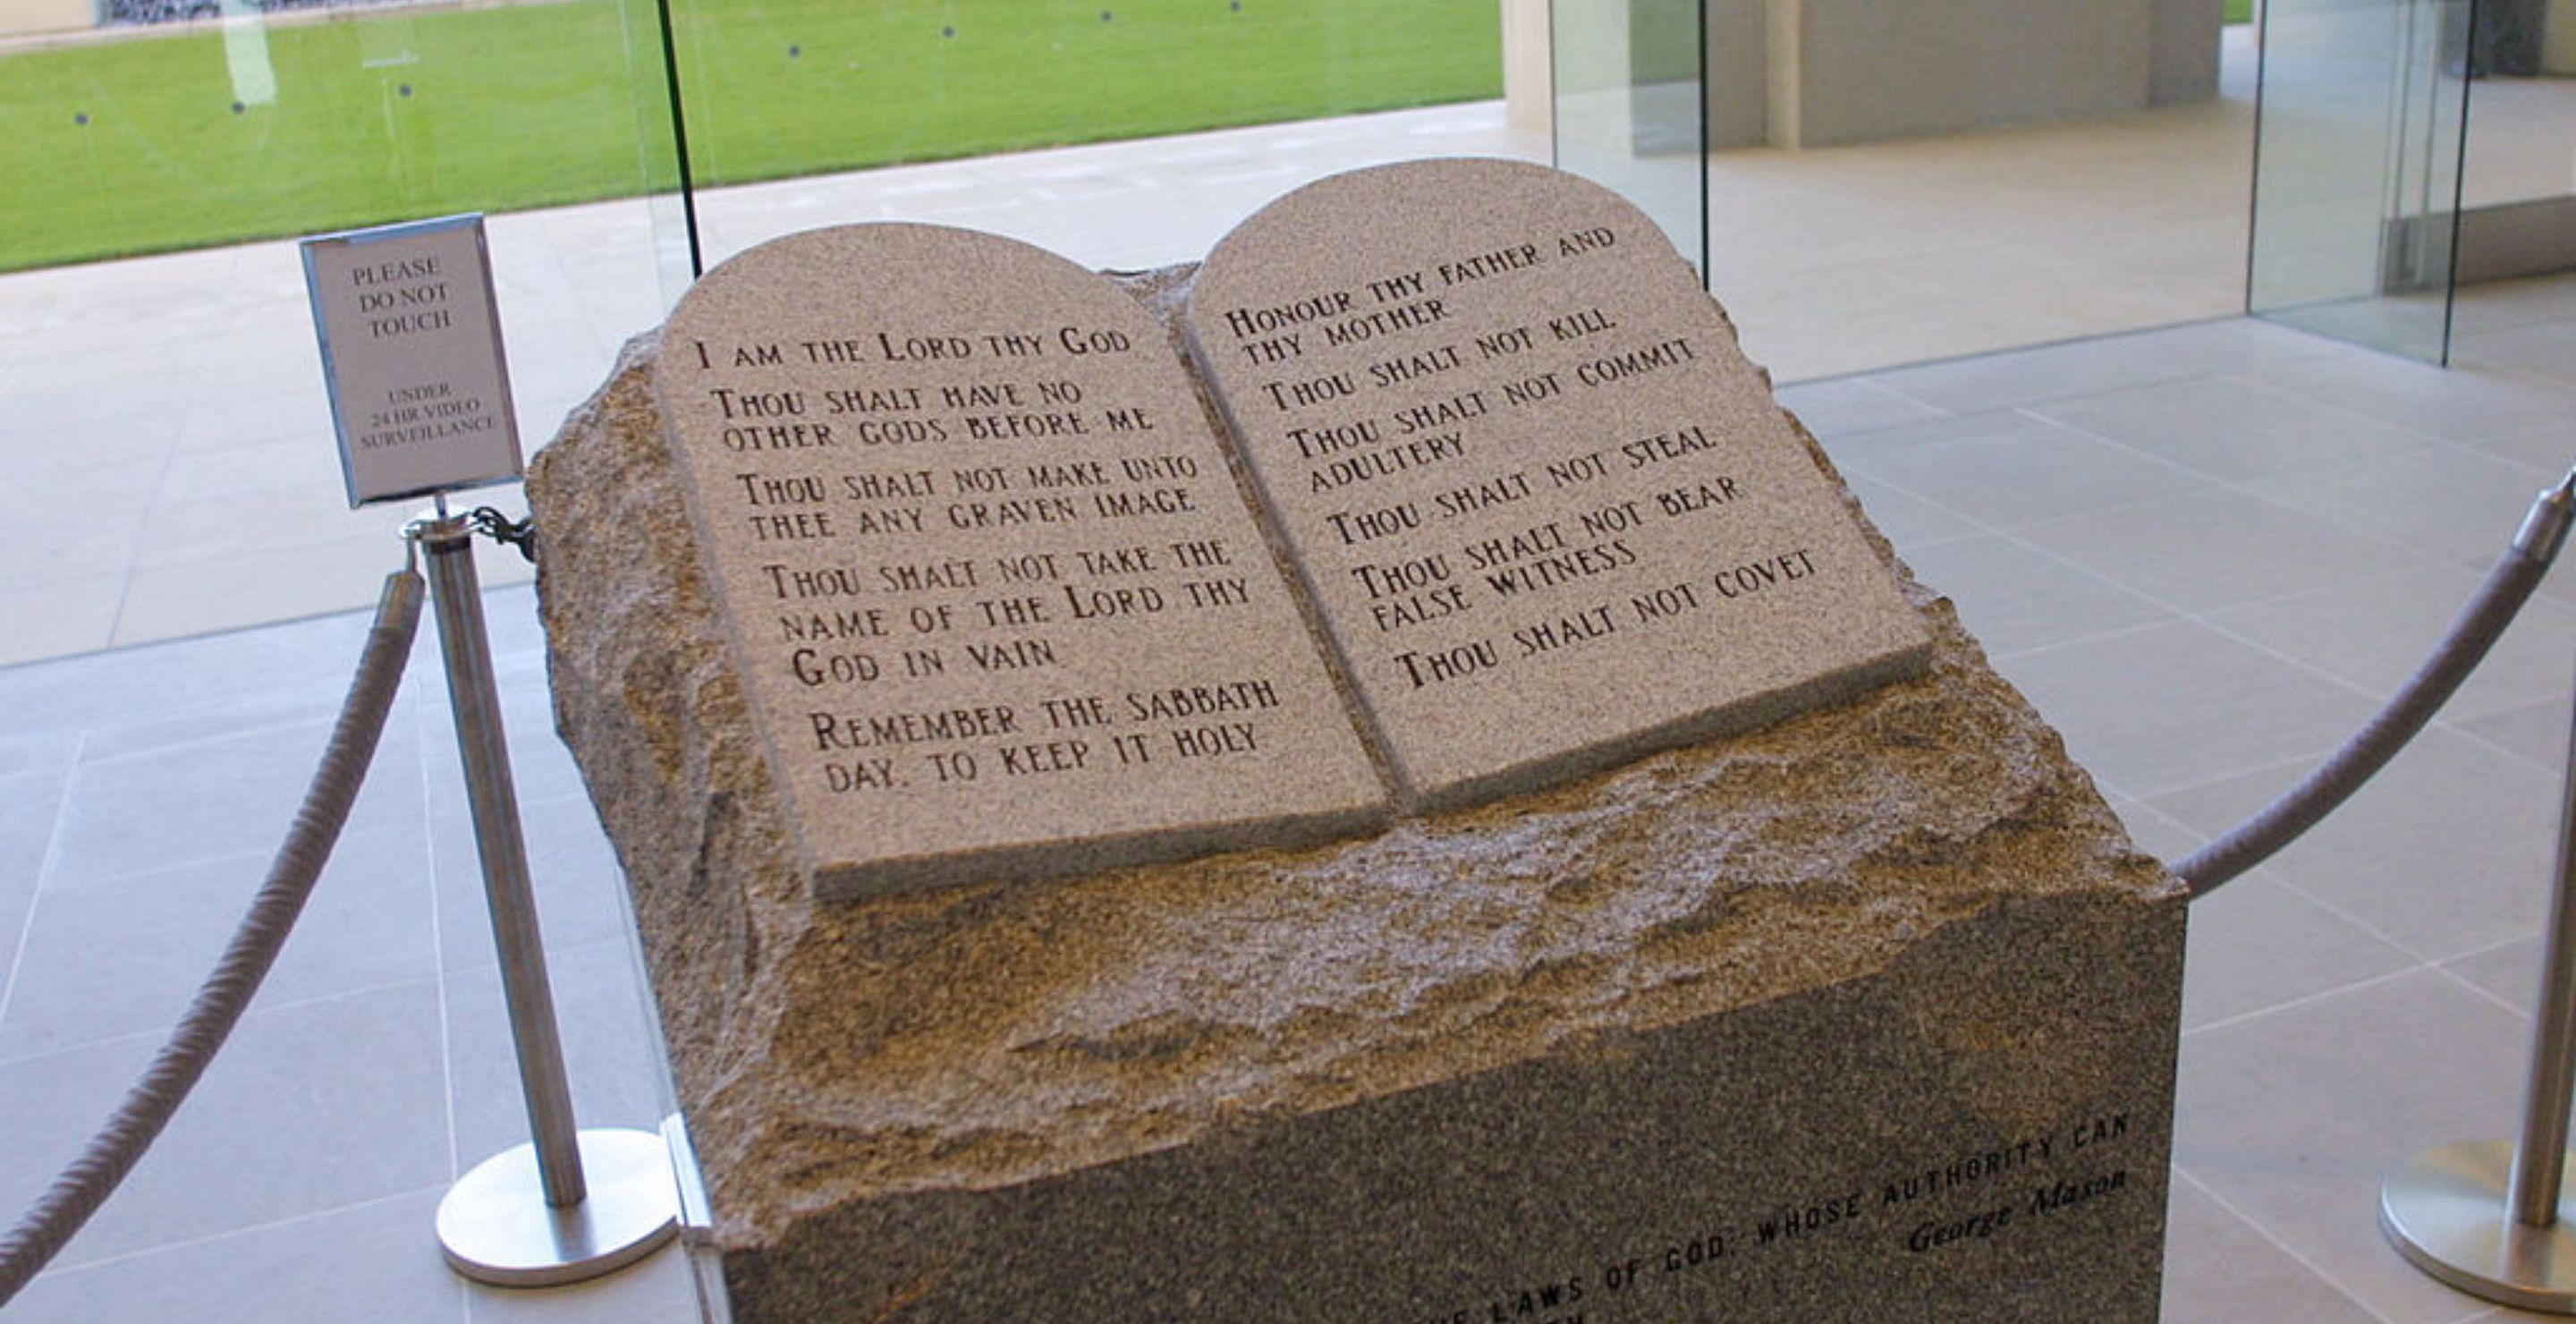 PLEASE
DO NOT
TOUCH
UNDER
24 HR VIDEO
SURVEILLANCE
I AM THE LORD THY GOD
THOU SHALT HAVE NO
OTHER GODS BEFORE ME
THOU SHALT NOT MAKE UNTO
THEE ANY GRAVEN IMAGE
THOU SHALT NOT TAKE THE
NAME OF THE LORD THY
GOD IN VAIN
REMEMBER THE SABBATH
DAY, TO KEEP IT HOLY
HONOUR THY FATHER AND
THY MOTHER
THOU SHALT NOT KILL
THOU SHALT NOT COMMIT
ADULTERY
THOU SHALT NOT STEAL
THOU SHALT NOT BEAR
FALSE WITNESS
THOU SHALT NOT COVET
LAWS OF GOD, WHOSE AUTHORITY CAN
George Mason